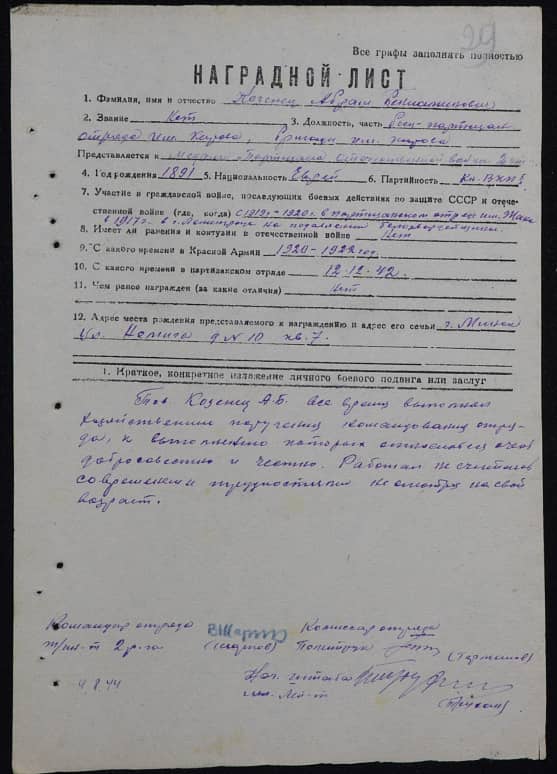 29
Все графы заполнять полностью
НАГРАДНОЙ ЛИСТ
1. Фамилия, имя и отчество Коженец Абрам Вениаминович
2. Звание Нет 3. Должность, часть партизан
отряда им. Кирова, бригады им. Кирова
Представляется к медали „Партизана отечественной войны 2 ст."
4. Год рождения 1891 5. Национальность Еврей 6. Партийность Кн. ВКП/б
7. Участие в гражданской войне, последующих боевых действиях по защите СССР и отече-
ственной войне (где, когда) с 1919г-1920г. в партизанском отряде им.
в 1917г. в г. на подавлении
8. Имеет ли ранения и контузии в отечественной войне Нет
9. С какого времени в Красной Армии 1920-1922 год.
10. С какого времени в партизанском отряде 12.12.42.
11. Чем ранее награжден (за какие отличия) Нет
12. Адрес места рождения представляемого к награждению и адрес его семьи г. Минск
ул. Немига д N 10 кв. 7.
1. Краткое, конкретное изложение личного боевого подвига или заслуг
Тов Коженец А.Б. все время выполнял
хозяйственные поручения командования отря-
да, к выполнению которых относился очень
добросовестно и честно. Работал не считаясь
со временем и трудностями не смотря на свой
возраст.
Командир отряда Комиссар отряда
т/ин-т 2 р-га Политрук
Нач. штаба
мл. лей-т
4.8.44